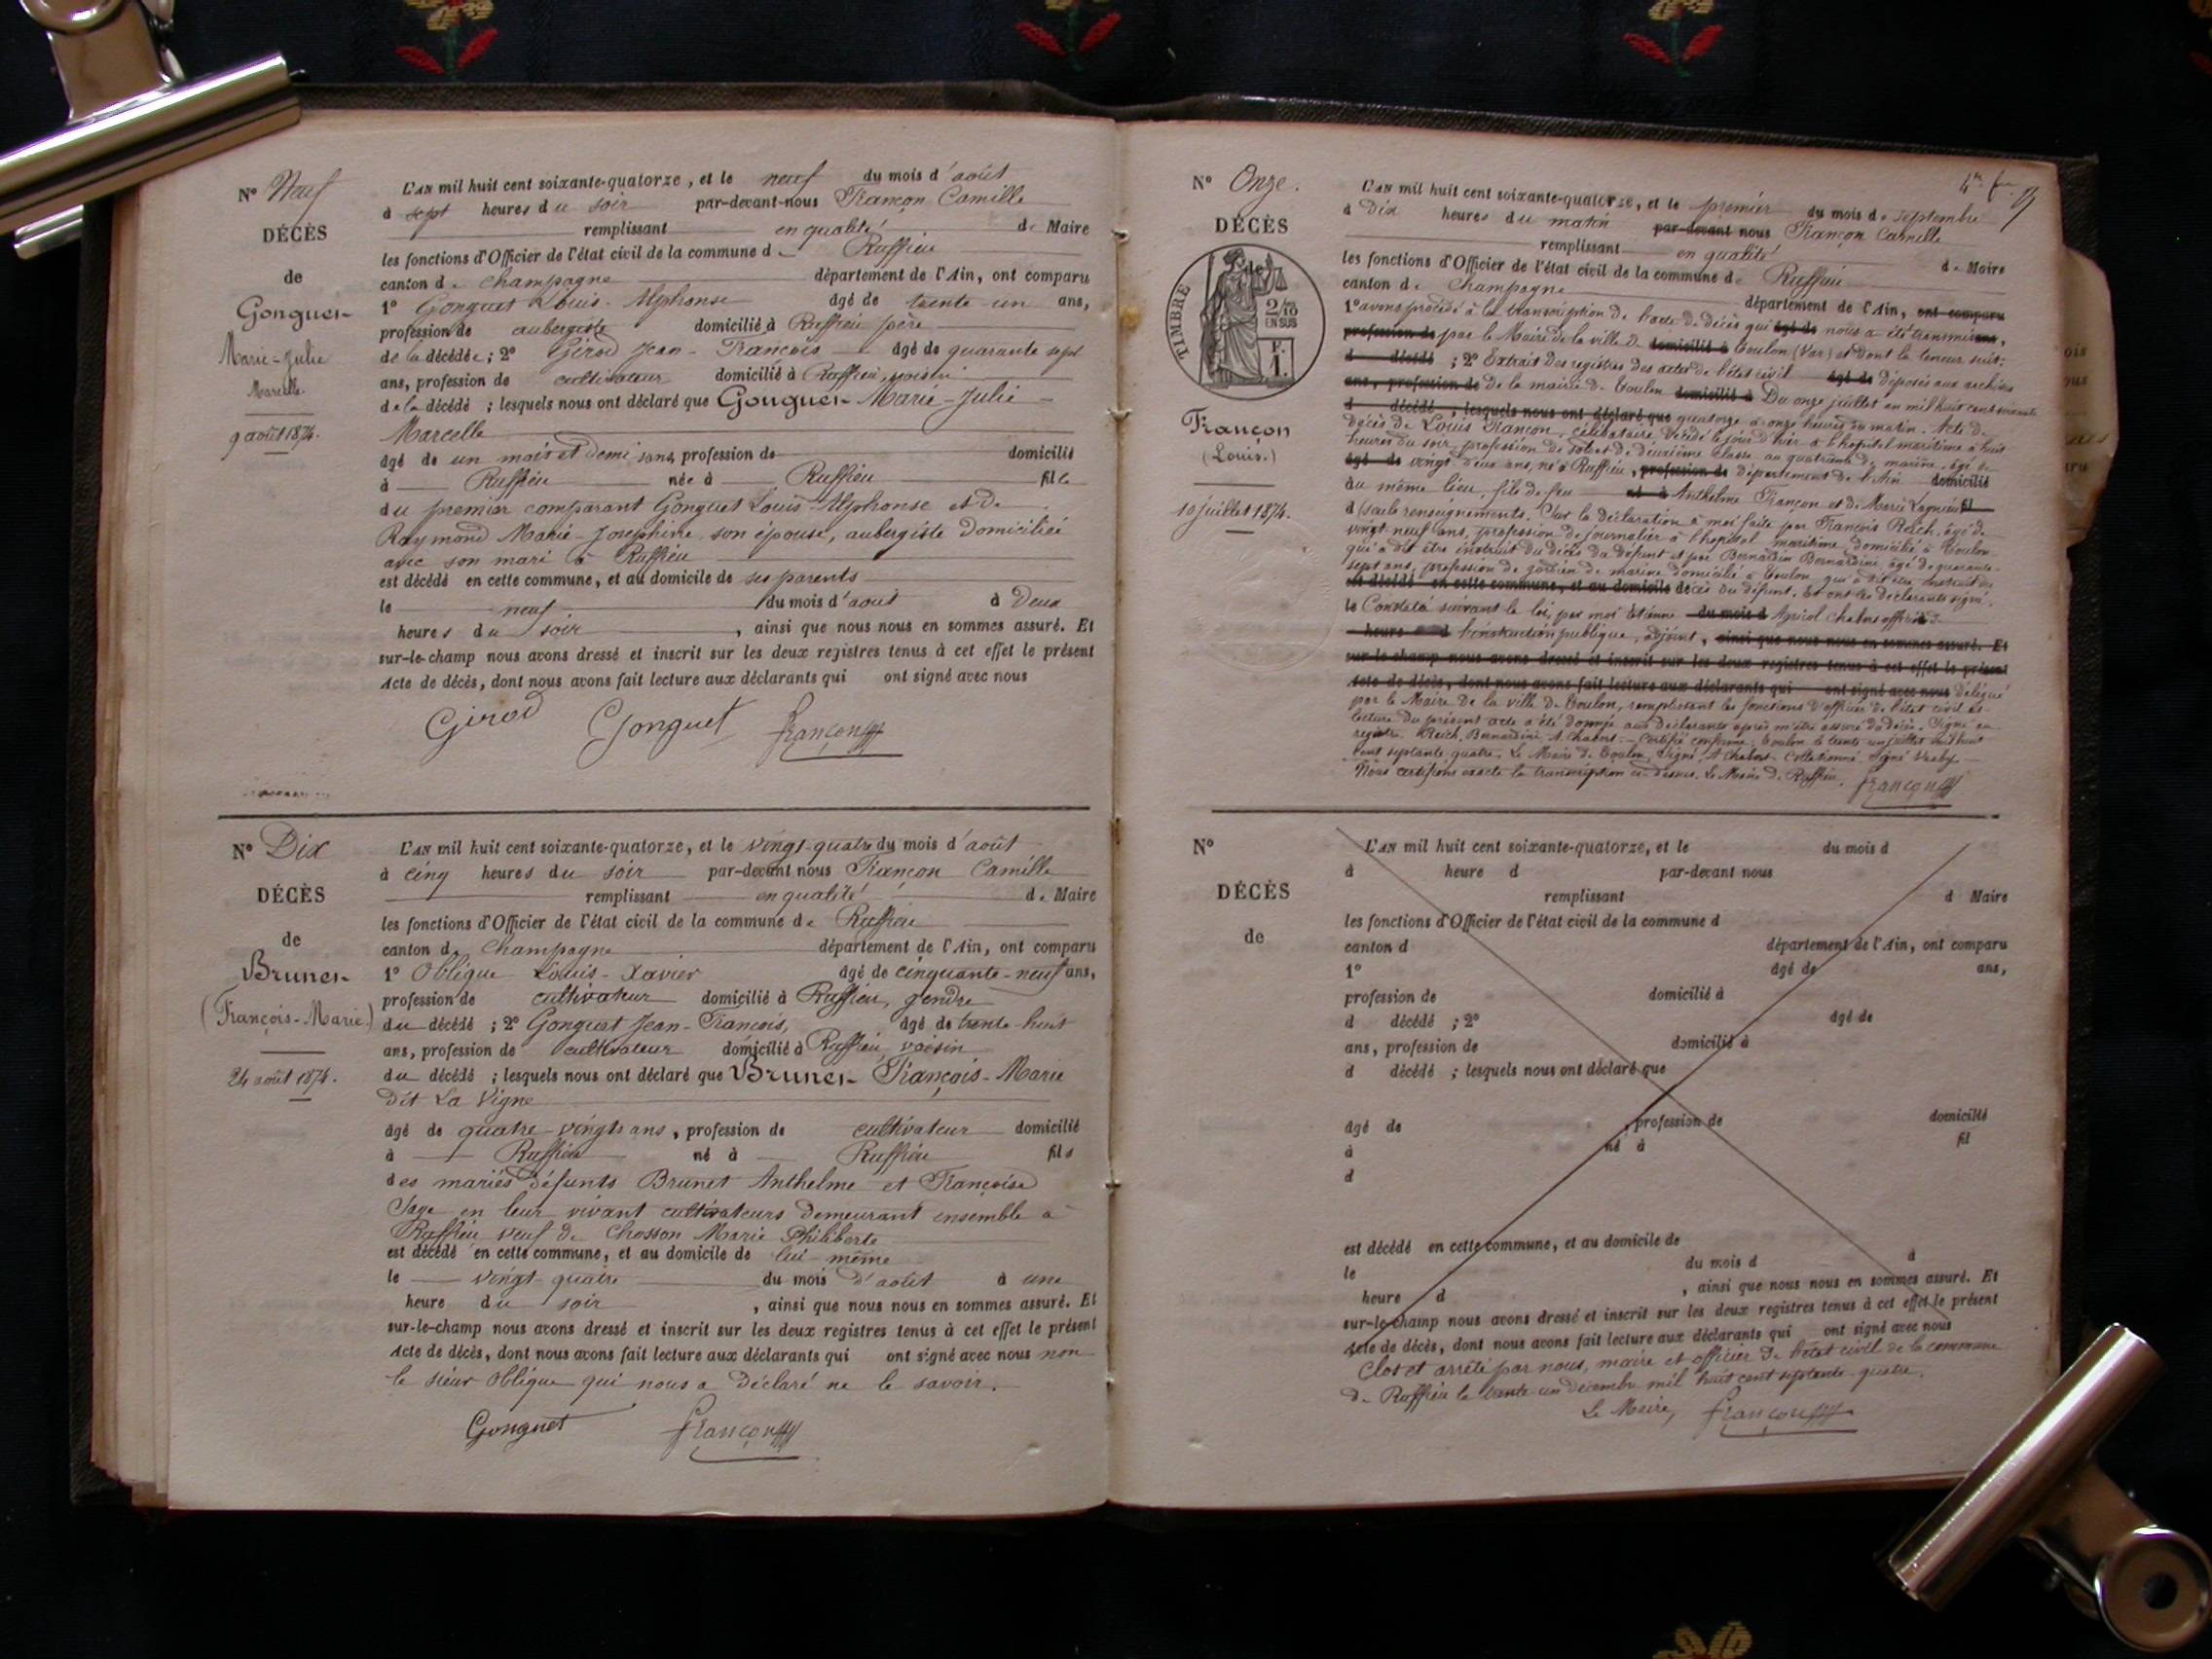 N° Neuf
DÉCÈS
de
Gonguet
Marie-Julie
Marcelle
9 août 1874.
L'AN mil huit cent soixante-quatorze, et le neuf du mois d'août
à sept heures du soir par-devant-nous Françon Camille
remplissant en qualité de Maire
les fonctions d'Officier de l'état civil de la commune de Ruffieu
canton de Champagne département de l'Ain, ont comparu
1° Gonguet Louis-Alphonse âgé de trente un ans,
profession de aubergiste domicilié à Ruffieu père
de la décédée ; 2° Girod Jean-François âgé de quarante sept
ans, profession de cultivateur domicilié à Ruffieu, voisin
de la décédé ; lesquels nous ont déclaré que Gonguet Marie-Julie
Marcelle
âgé de un mois et demi sans profession de domicilié
à Ruffieu née à Ruffieu fille
du premier comparant Gonguet Louis-Alphonse et de
Raymond Marie-Josephine son épouse, aubergiste domiciliée
avec son mari à Ruffieu
est décédé en cette commune, et au domicile de ses parents
le neuf du mois d'août à Deux
heures du soir, ainsi que nous nous en sommes assuré. Et
sur-le-champ nous avons dressé et inscrit sur les deux registres tenus à cet effet le présent
Acte de décès, dont nous avons fait lecture aux déclarants qui ont signé avec nous
Girod Gonguet Françon
N° Dix
DÉCÈS
de
Brunet
(François-Marie.)
24 août 1874.
L'AN mil huit cent soixante-quatorze, et le vingt-quatre du mois d'août
à cinq heures du soir par-devant nous Françon Camille
remplissant en qualité de Maire
les fonctions d'Officier de l'état civil de la commune de Ruffieu
canton de Champagne département de l'Ain, ont comparu
1° Oblique Louis-Xavier âgé de cinquante-neuf ans,
profession de cultivateur domicilié à Ruffieu, gendre
du décédé ; 2° Gonguet Jean-François, âgé de trente-huit
ans, profession de cultivateur domicilié à Ruffieu voisin
du décédé ; lesquels nous ont déclaré que Brunet François-Marie
dit La Vigne
âgé de quatre-vingts ans, profession de cultivateur domicilié
à Ruffieu né à Ruffieu fils
des mariés défunts Brunet Anthelme et Françoise
Sage en leur vivant cultivateurs demeurant ensemble à
Ruffieu veuf de Chosson Marie Philiberte
est décédé en cette commune, et au domicile de lui-même
le vingt-quatre du mois d'août à une
heure du soir, ainsi que nous nous en sommes assuré. Et
sur-le-champ nous avons dressé et inscrit sur les deux registres tenus à cet effet le présent
Acte de décès, dont nous avons fait lecture aux déclarants qui ont signé avec nous non
le sieur Oblique qui nous a déclaré ne le savoir.
Gonguet Françon
N° Onze.
DÉCÈS
de
TIMBRE
2/10
EN SUS
F.
1.
Françon
(Louis.)
10 juillet 1874.
L'AN mil huit cent soixante-quatorze, et le premier du mois de septembre
à Dix heures du matin par-devant nous Françon Camille
remplissant en qualité de Maire
les fonctions d'Officier de l'état civil de la commune de Ruffieu
canton de Champagne département de l'Ain, ont comparu
1° avons procédé à la transcription de l'acte de décès qui âgé de nous a été transmis ans,
profession de par le Maire de la ville de domicilié à Toulon (Var) et dont la teneur suit:
d décédé ; 2° Extrait des registres des actes de l'état civil âgé de déposés aux archives
ans, profession de de la mairie de Toulon domicilié à Du onze juillet an mil huit cent soixante
d décédé, lesquels nous ont déclaré que quatorze à onze heures du matin. Acte de
décès de Louis Françon, célibataire décédé le jour d'hier à l'hopital maritime à huit
heures du soir, profession de soldat de deuxième classe au quatrième de marine, âgé de
âgé de vingt deux ans, né à Ruffieu, profession de département de l'Ain domicilié
au même lieu, fils de feu né à Anthelme Françon et de Marie fil
d (seuls renseignements. Sur la déclaration à moi faite par François Reich, âgé de
vingt neuf ans, profession de journalier à l'hopital maritime domicilié à Toulon
qui a dit être instruit du décès du défunt et par Bernardin Bernardini âgé de quarante-
sept ans, profession de gardien de marine domicilié à Toulon qui a dit être instruit du
est décédé en cette commune, et au domicile décès du défunt. Et ont les déclarants signé.
le Constaté suivant la loi, par moi Etienne du mois d Agricol Chabert officier d
heure d l'instruction publique, adjoint, ainsi que nous nous en sommes assuré. Et
sur-le-champ nous avons dressé et inscrit sur les deux registres tenus à cet effet le présent
Acte de décès, dont nous avons fait lecture aux déclarants qui ont signé avec nous délégué
par le Maire de la ville de Toulon, remplissant les fonctions d'officier de l'état civil et
lecture du présent acte a été donnée aux déclarants après m'être assuré du décès. Signé au
registre Reich, Bernardini A. Chabert. Certifié conforme: Toulon le trente un juillet mil huit
cent septante-quatre. Le Maire de Toulon, Signé, A Chabert. Collationné. Signé
Nous certifions exacte la transcription ci-dessus. Le Maire de Ruffieu. Françon
N°
DÉCÈS
de
L'AN mil huit cent soixante-quatorze, et le du mois d
à heure d par-devant nous
remplissant d Maire
les fonctions d'Officier de l'état civil de la commune d
canton d département de l'Ain, ont comparu
1° âgé de ans,
profession de domicilié à
d décédé ; 2° âgé de
ans, profession de domicilié à
d décédé ; lesquels nous ont déclaré que
âgé de , profession de domicilié
à né à fil
d
est décédé en cette commune, et au domicile de
le du mois d à
heure d , ainsi que nous nous en sommes assuré. Et
sur-le-champ nous avons dressé et inscrit sur les deux registres tenus à cet effet le présent
Acte de décès, dont nous avons fait lecture aux déclarants qui ont signé avec nous
Clos et arrêté par nous, maire et officier de l'état civil de la commune
de Ruffieu le trente-un décembre mil huit cent septante-quatre.
Le Maire, Françon